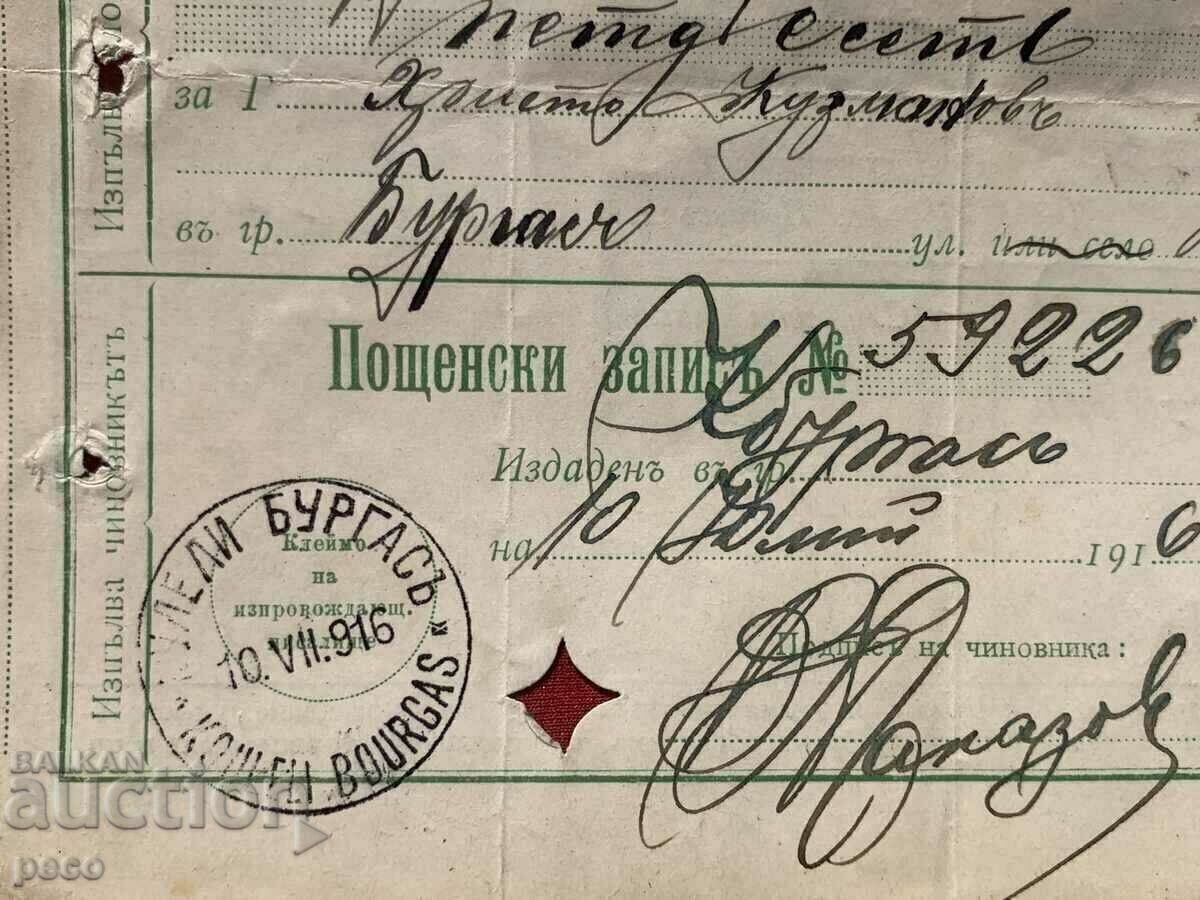 Петдесетъ
за Г Христо Кузмановъ
въ гр. Бургасъ ул. или село
Пощенски записъ № 59226
Издаденъ въ гр. К. Бургасъ
на 10 Юлий 1916
Подпись на чиновника:
Изпълва чиновникътъ
КУЛЕЛИ БУРГАСЪ
Клеймо
на
изпровождающ.
населище
10.VII.916
" KOULELI BOURGAS "
BALKAN
auction
peco